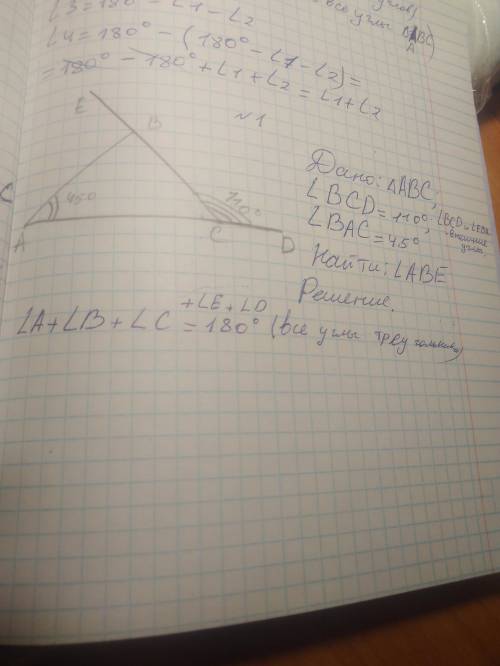 ∠3=180° - ∠1 - ∠2
все углы ΔABC)
∠4=180° - (180° - ∠1 - ∠2)=
= 180° - 180° + ∠1 + ∠2 = ∠1 + ∠2
N1
E
B
45°
110°
A
C
D
Дано: ΔABC,
∠BCD=110°; ∠BCD и ∠EBA
внешние
углы
∠BAC=45°
Найти: ∠ABE
Решение.
+∠E + ∠D
∠A+∠B+∠C = 180° (все углы треугольника)